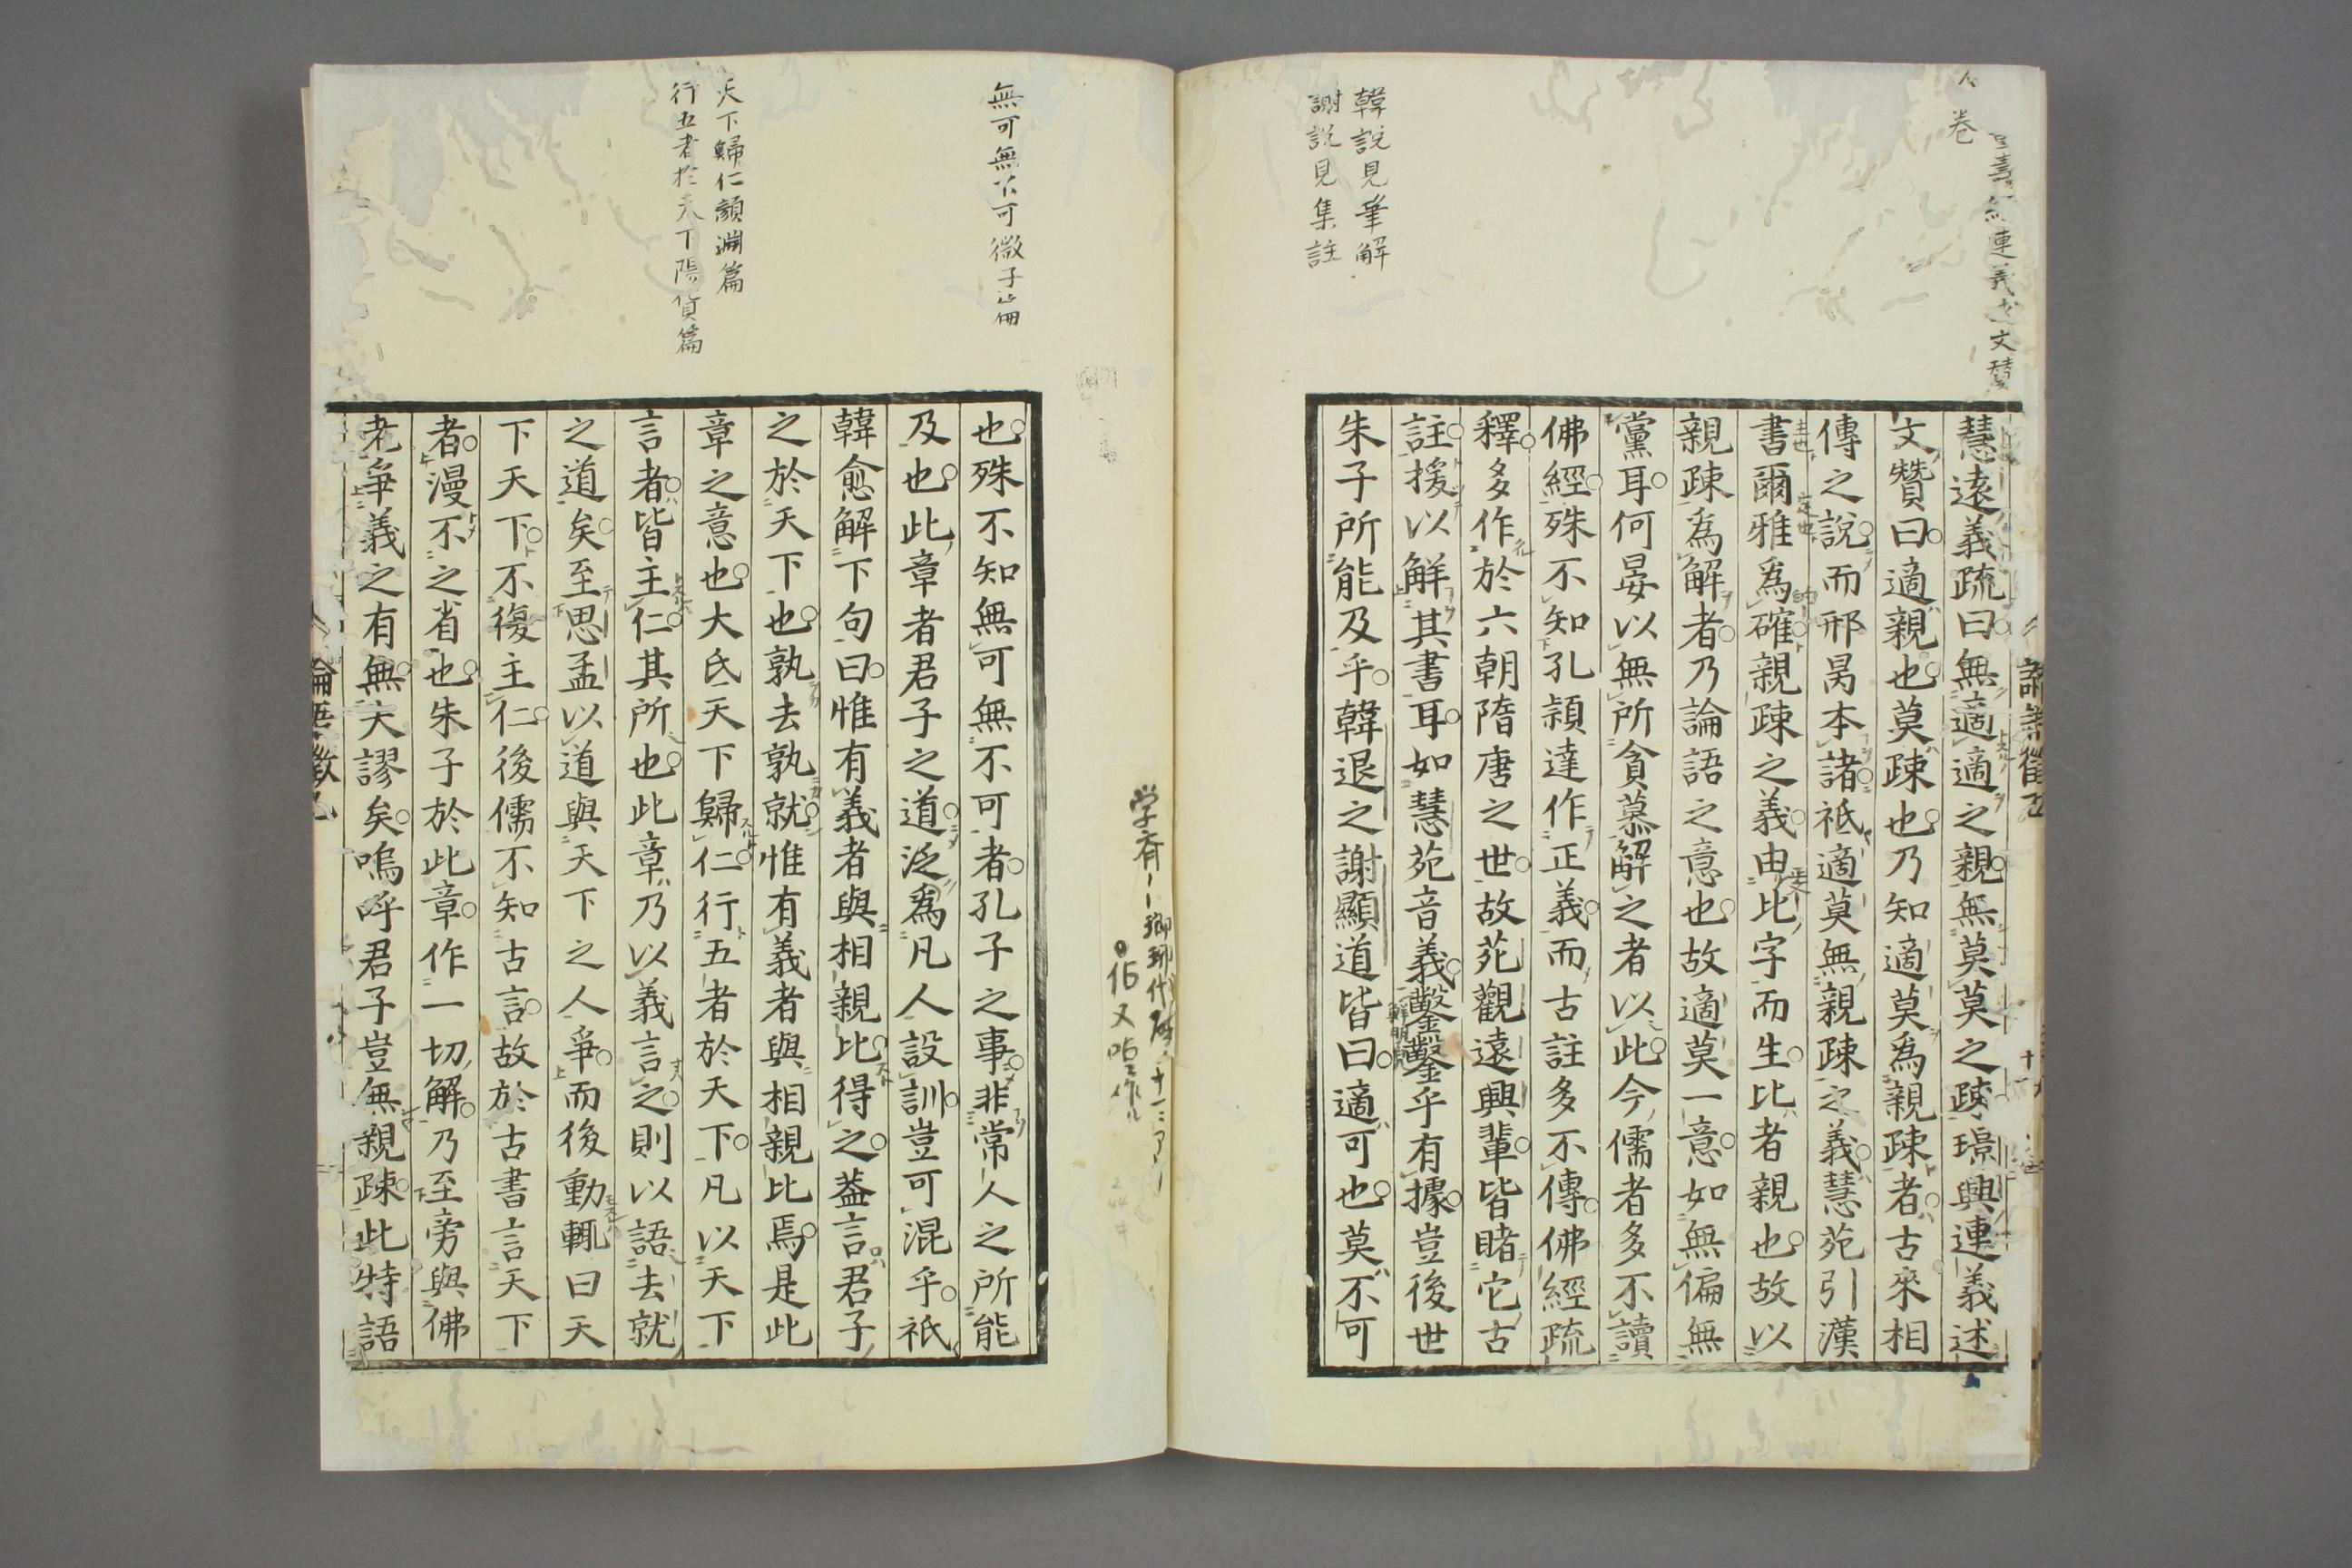 慧遠義疏曰無適適之親無莫莫之疎璟興連義述
文贊曰適親也莫疎也乃知適莫爲親疎者古來相
傳之說而邢昺本諸祗適莫無親疎之義慧苑引漢
書爾雅爲確親疎之義由比字而生比者親也故以
親疎爲解者乃論語之意也故適莫一意如無偏無
黨耳何晏以無所貪慕解之者以此今儒者多不讀
佛經殊不知孔頴達作正義而古註多不傳佛經疏
釋多作於六朝隋唐之世故苑觀遠興輩皆睹它古
註援以解其書耳如慧苑音義鑿鑿乎有據豈後世
朱子所能及乎韓退之謝顯道皆曰適可也莫不可
韓說見筆解
謝說見集註
也殊不知無可無不可者孔子之事非常人之所能
及也此章者君子之道泛爲凡人設訓豈可混乎祇
韓愈解下句曰惟有義者與相親比得之葢言君子
之於天下也孰去孰就惟有義者與相親比焉是此
章之意也大氐天下歸仁行五者於天下凡以天下
言者皆主仁其所也此章乃以義言之則以語去就
之道矣至思孟以道與天下之人爭而後動輒曰天
下天下不復主仁後儒不知古言故於古書言天下
者漫不之省也朱子於此章作一切解乃至旁與佛
老爭義之有無大謬矣嗚呼君子豈無親疎此特語
無可無不可微子篇
天下歸仁顔淵篇
行五者於天下陽貨篇